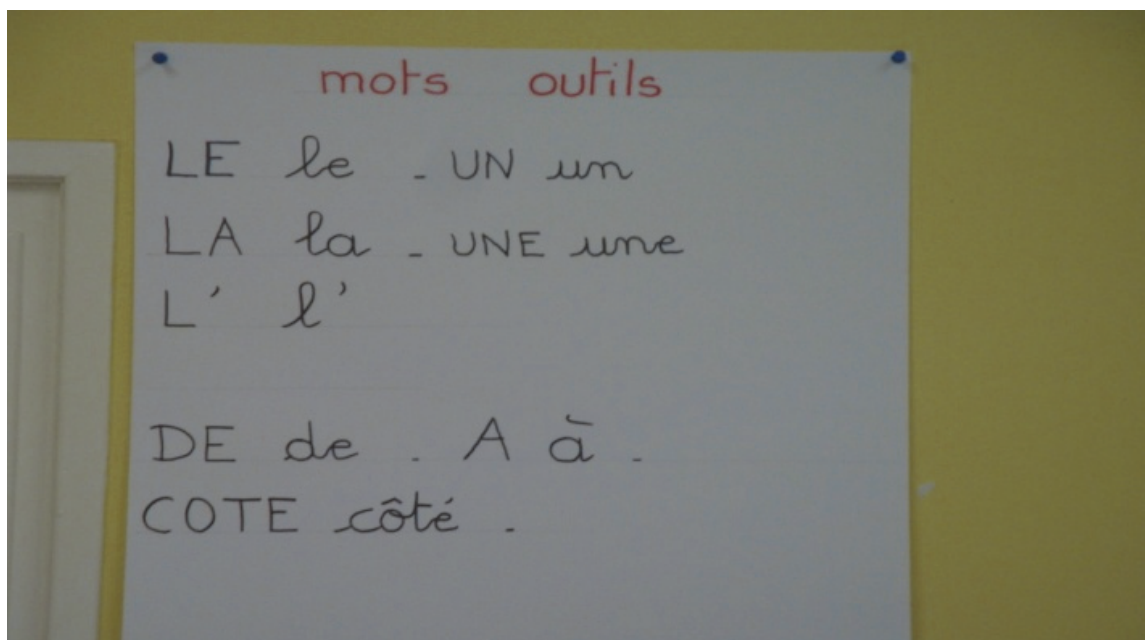 mots outils
LE le - UN un
LA la - UNE une
L' l'
DE de - A à -
COTE côté -